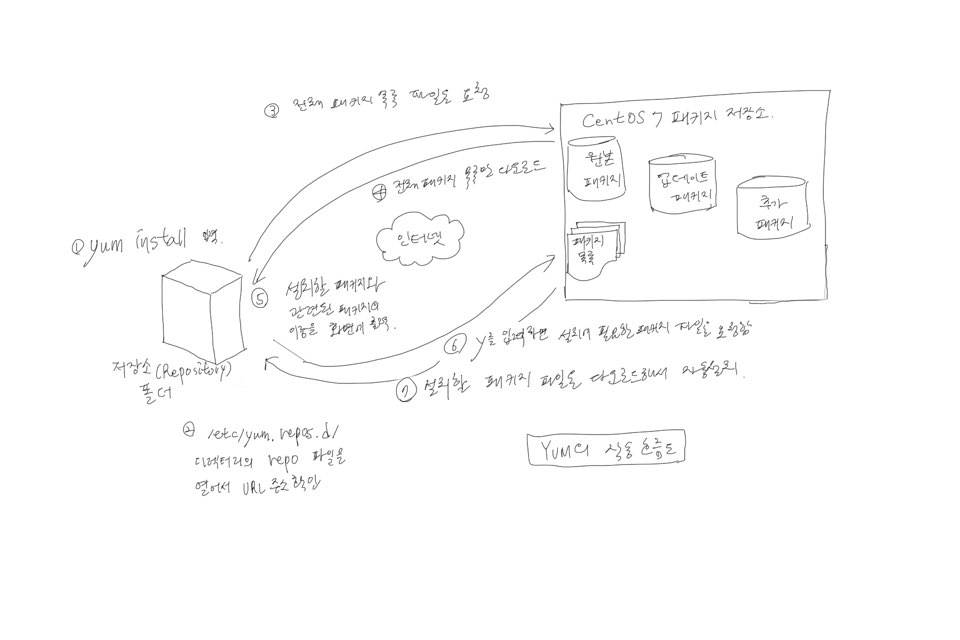 ③ 전체 패키지 목록 파일을 요청
CentOS 7 패키지 저장소.
원본
패키지
업데이트
패키지
추가
패키지
패키지
목록
④ 전체 패키지 목록만 다운로드
인터넷
① yum install 입력.
⑤ 설치할 패키지와
관련된 패키지의
이름을 화면에 출력.
저장소(Repository)
폴더
⑥ y를 입력하면 설치에 필요한 패키지 파일을 요청함
⑦ 설치할 패키지 파일을 다운로드해서 자동설치.
② /etc/yum.repos.d/
디렉터리의 repo 파일을
열어서 URL 주소확인
YUM의 작동 흐름도